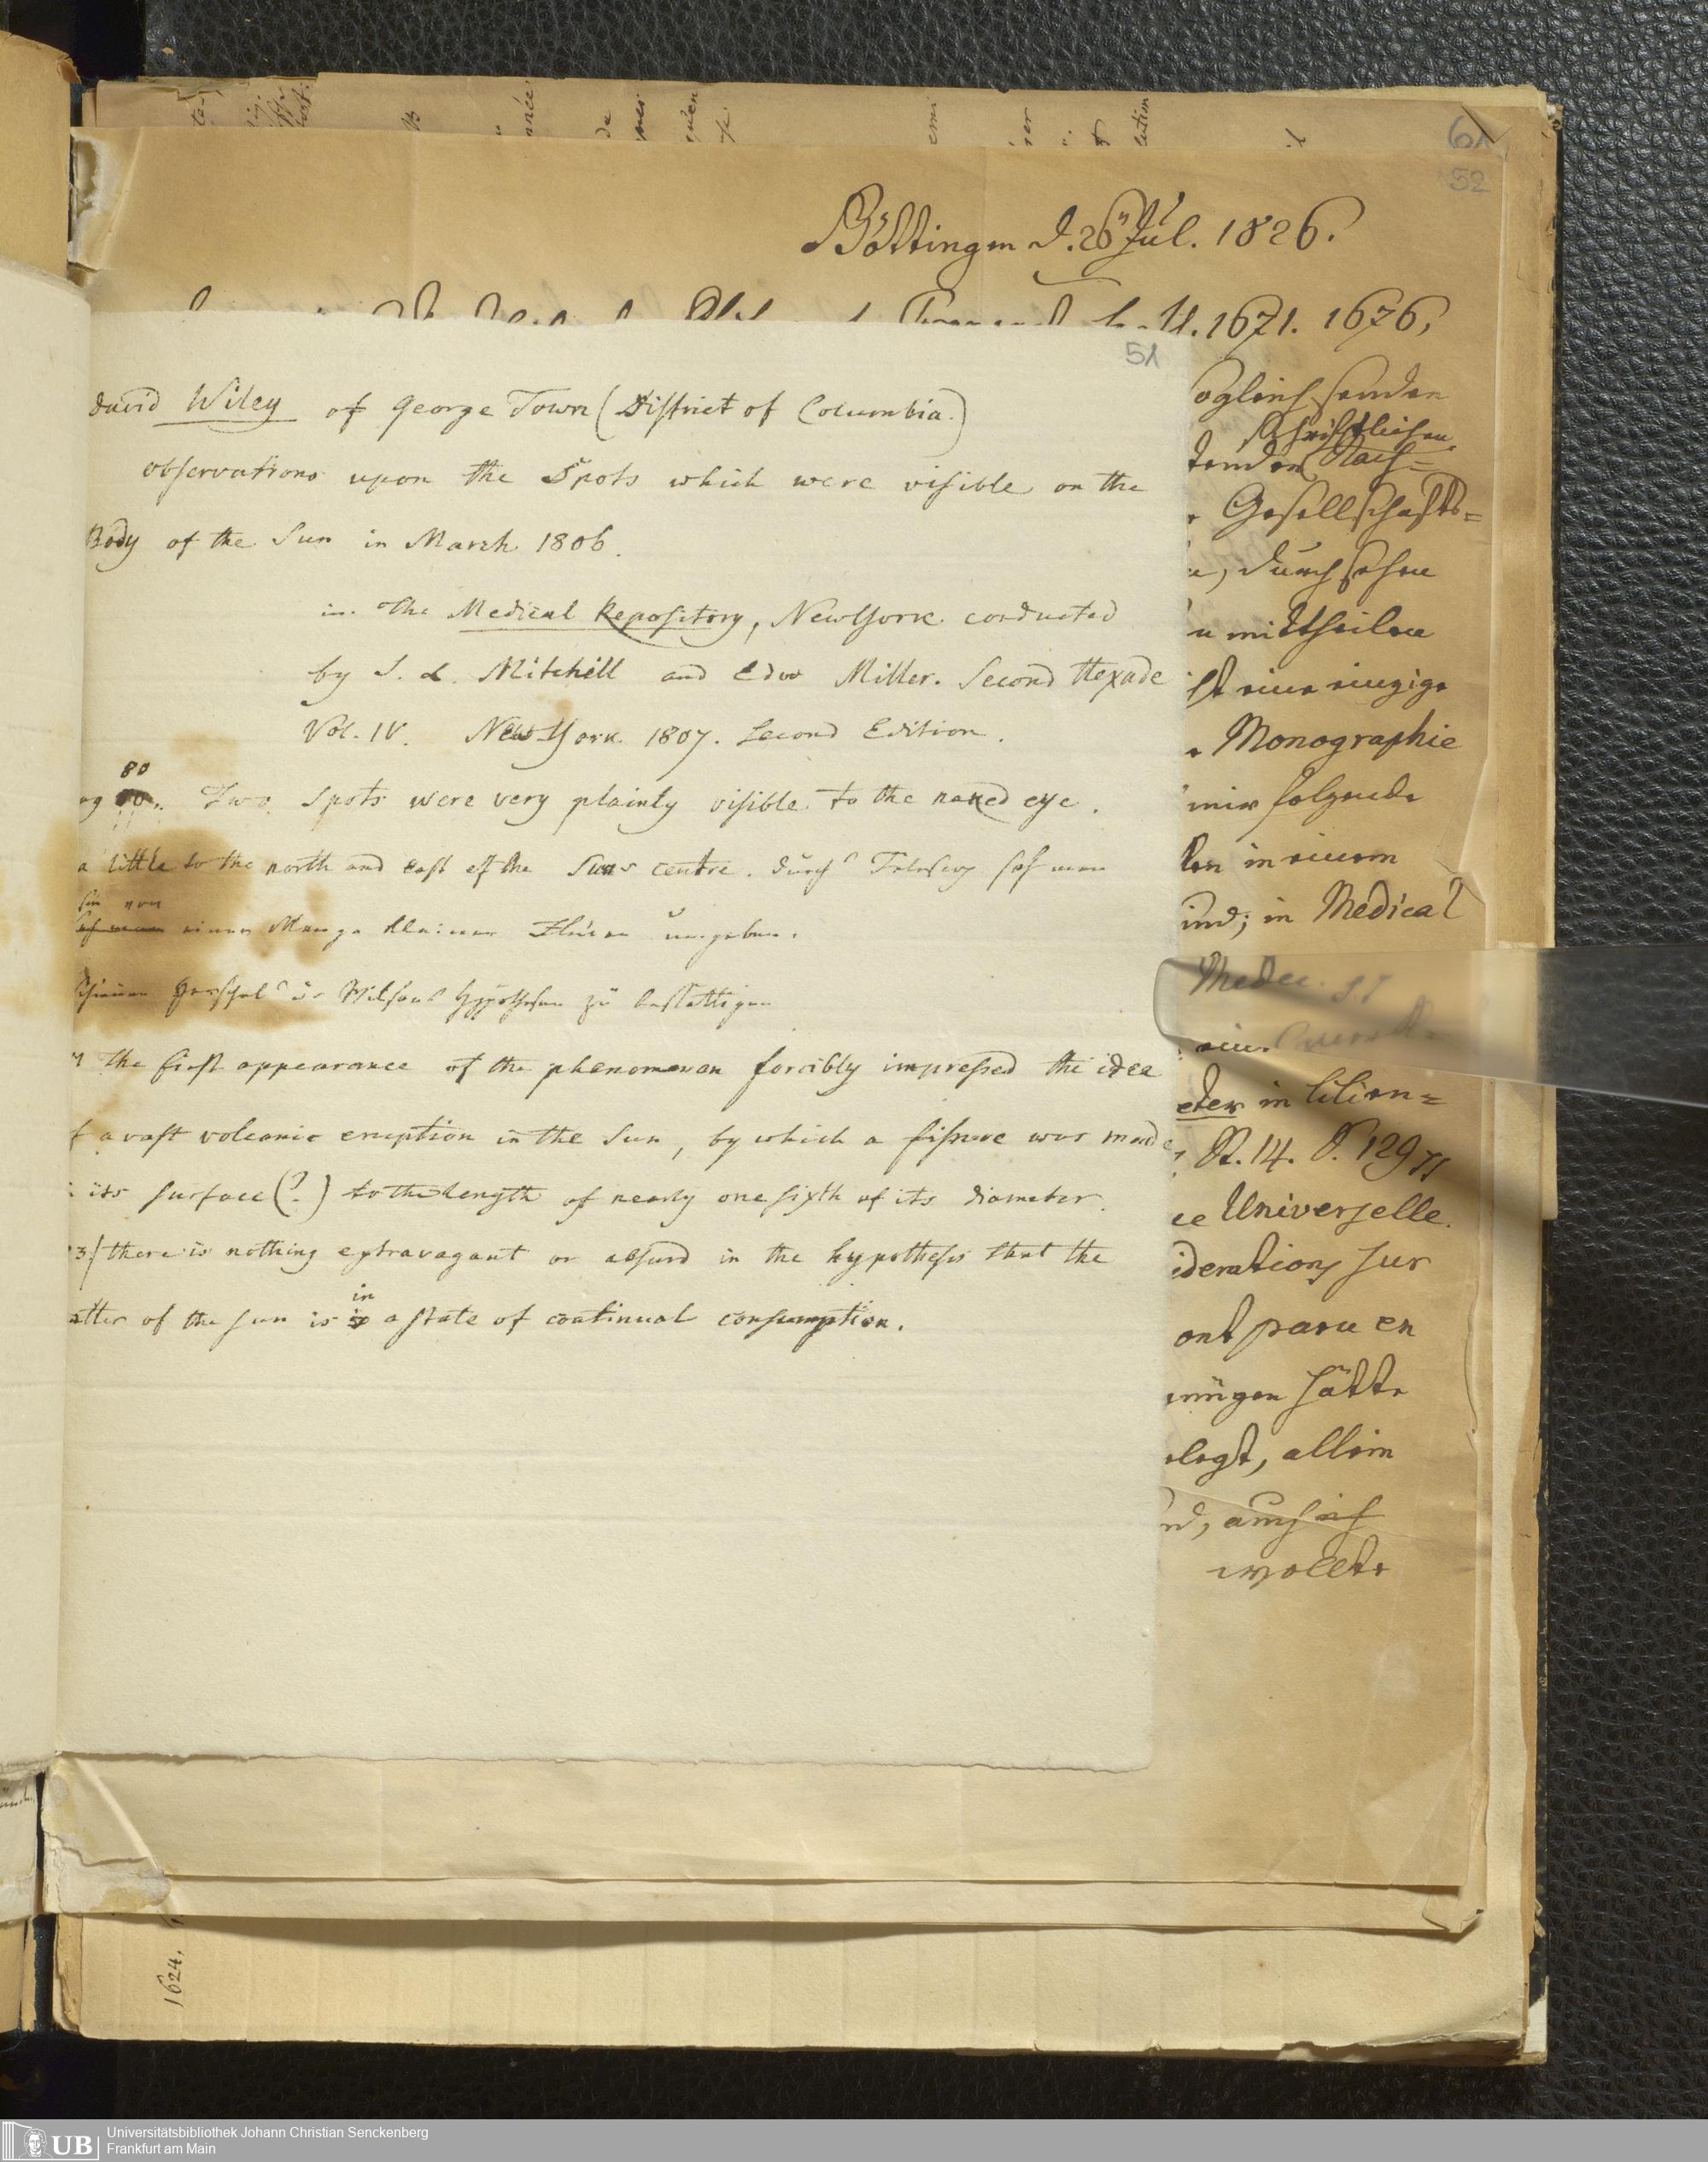 61
52
Göttingen d. 26 Jul. 1826.
1671. 1676,
51
David Wiley of George Town (District of Columbia.)
observations upon the Spots which were visible on the
Body of the Sun in March 1806.
in. The Medical Repository, NewYork conducted
by S. L. Mitchill and Edw Miller. Second Hexade
Vol. IV. New York 1807. Second Edition.
80
Two Spots were very plainly visible to the naked eye.
a little to the north and east of the Suns centre. durchs Telescop sah man
sie von
einer Menge kleiner umgeben.
Herschels u. Wilsons Hypothesen zu bestättigen
the first appearance of the phenomenon forcibly impressed the idea
f a vast volcanic eruption in the Sun, by which a fissure was made
its surface (?) to the length of nearly one sixth of its diameter.
3/ there is nothing extravagant or absurd in the hypothesis that the
in
atter of the sun is a state of continual consumption.
ogleich senden
schriftlichen
Nach=
Gesellschafts=
durchsehen
mittheilen
ist eine einzige
Monographie
mir folgende
in einem
ind; in Medical
Medec.
eine
eter in lilien=
St. 14. S. 129
ce Universelle.
iderations sur
ont paru en
nügen hätte
elegt, allein
nd, auch ich
wollte
1624,
UB
Universitätsbibliothek Johann Christian Senckenberg
Frankfurt am Main